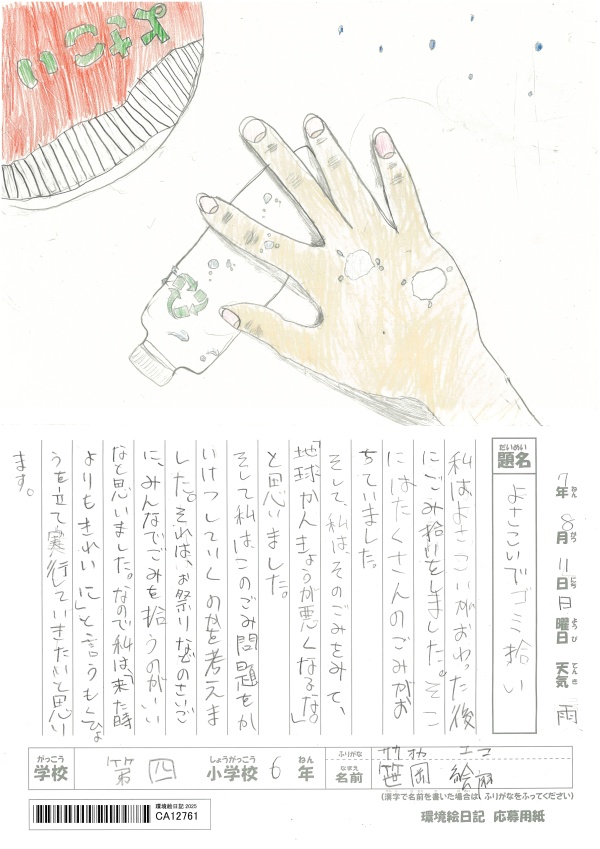 よさこい
7年 8月 11日 日曜日 天気 雨
ねん がつ にち ようび てんき
だいめい
題名
よさこいでゴミ拾い
私はよさこいがおわった後
にごみ拾いをしました。そこ
にはたくさんのごみがお
ちていました。
そして、私はそのごみをみて、
「地球かんきょうが悪くなるな。」
と思いました。
そして私はこのごみ問題をか
いけつしていくのかを考えま
した。それは、お祭りなどのさいご
に、みんなでごみを拾うのがいい
なと思いました。なので私は、「来た時
よりもきれいに」と言うもくひょ
うを立て実行していきたいと思い
ます。
がっこう しょうがっこう ねん
学校 第四 小学校 6年
ふりがな ササオカ エコ
なまえ
名前 笹岡 絵
(漢字で名前を書いた場合は、ふりがなをふってください)
環境絵日記 2025
CA12761
環境絵日記 応募用紙